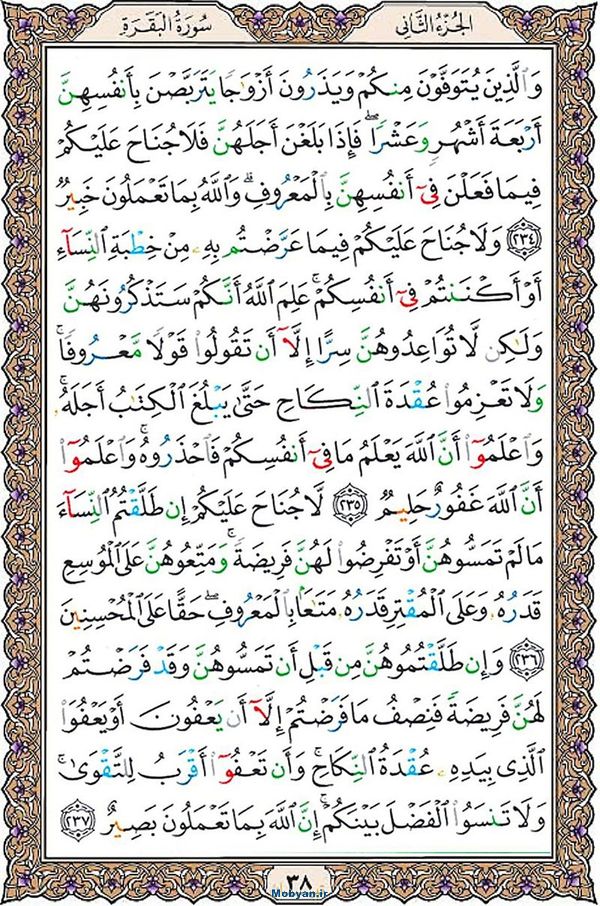 الجُزءُ الثَّانِى
سُورَةُ البَقَرَةِ
وَالَّذِينَ يُتَوَفَّوْنَ مِنكُمْ وَيَذَرُونَ أَزْوَٰجًا يَتَرَبَّصْنَ بِأَنفُسِهِنَّ
أَرْبَعَةَ أَشْهُرٍ وَعَشْرًا ۖ فَإِذَا بَلَغْنَ أَجَلَهُنَّ فَلَا جُنَاحَ عَلَيْكُمْ
فِيمَا فَعَلْنَ فِىٓ أَنفُسِهِنَّ بِالْمَعْرُوفِ ۗ وَاللَّهُ بِمَا تَعْمَلُونَ خَبِيرٌ
﴿٢٣٤﴾ وَلَا جُنَاحَ عَلَيْكُمْ فِيمَا عَرَّضْتُم بِهِۦ مِنْ خِطْبَةِ النِّسَآءِ
أَوْ أَكْنَنتُمْ فِىٓ أَنفُسِكُمْ ۚ عَلِمَ اللَّهُ أَنَّكُمْ سَتَذْكُرُونَهُنَّ
وَلَٰكِن لَّا تُوَاعِدُوهُنَّ سِرًّا إِلَّآ أَن تَقُولُوا قَوْلًا مَّعْرُوفًا ۚ
وَلَا تَعْزِمُوا عُقْدَةَ النِّكَاحِ حَتَّىٰ يَبْلُغَ الْكِتَٰبُ أَجَلَهُۥ ۚ
وَاعْلَمُوٓا أَنَّ اللَّهَ يَعْلَمُ مَا فِىٓ أَنفُسِكُمْ فَاحْذَرُوهُ ۚ وَاعْلَمُوٓا
أَنَّ اللَّهَ غَفُورٌ حَلِيمٌ ﴿٢٣٥﴾ لَّا جُنَاحَ عَلَيْكُمْ إِن طَلَّقْتُمُ النِّسَآءَ
مَا لَمْ تَمَسُّوهُنَّ أَوْ تَفْرِضُوا لَهُنَّ فَرِيضَةً ۚ وَمَتِّعُوهُنَّ عَلَى الْمُوسِعِ
قَدَرُهُۥ وَعَلَى الْمُقْتِرِ قَدَرُهُۥ مَتَٰعًا بِالْمَعْرُوفِ ۖ حَقًّا عَلَى الْمُحْسِنِينَ
﴿٢٣٦﴾ وَإِن طَلَّقْتُمُوهُنَّ مِن قَبْلِ أَن تَمَسُّوهُنَّ وَقَدْ فَرَضْتُمْ
لَهُنَّ فَرِيضَةً فَنِصْفُ مَا فَرَضْتُمْ إِلَّآ أَن يَعْفُونَ أَوْ يَعْفُوَا
الَّذِى بِيَدِهِۦ عُقْدَةُ النِّكَاحِ ۚ وَأَن تَعْفُوٓا أَقْرَبُ لِلتَّقْوَىٰ ۚ
وَلَا تَنسَوُا الْفَضْلَ بَيْنَكُمْ ۚ إِنَّ اللَّهَ بِمَا تَعْمَلُونَ بَصِيرٌ ﴿٢٣٧﴾
٣٨
Mobyan.ir